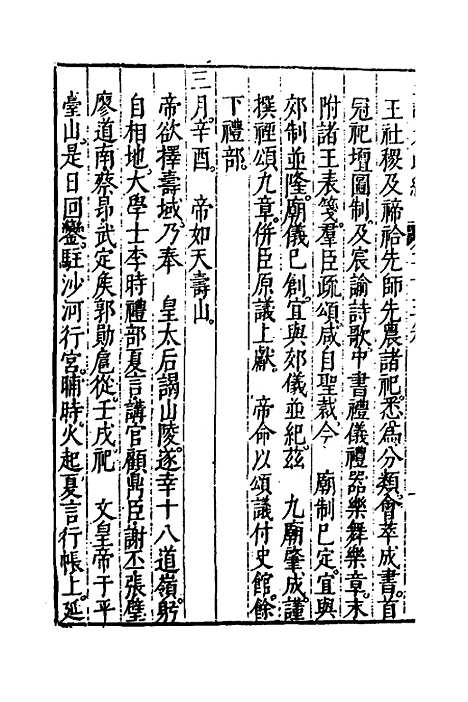 王社稷及禘祫先師先農諸祀悉爲分類會萃成書首
冠祀壇圖制及宸諭詩歌中書禮儀禮器樂舞樂章末
附諸王表箋羣臣疏頌咸自聖裁今　廟制已定宜與
郊制並隆廟儀已創宜與郊儀並紀茲　九廟肇成謹
撰禋頌九章併臣原議上獻　帝命以頌議付史館餘
下禮部
三月辛酉　帝如天壽山
帝欲擇壽域乃奉　皇太后謁山陵遂幸十八道嶺躬
自相地大學士李時禮部夏言講官顧鼎臣謝丕張璧
廖道南蔡昂武定矦郭勛扈從壬戌祀　文皇帝于平
臺山是日回鑾駐沙河行宮晡時火起夏言行帳上延